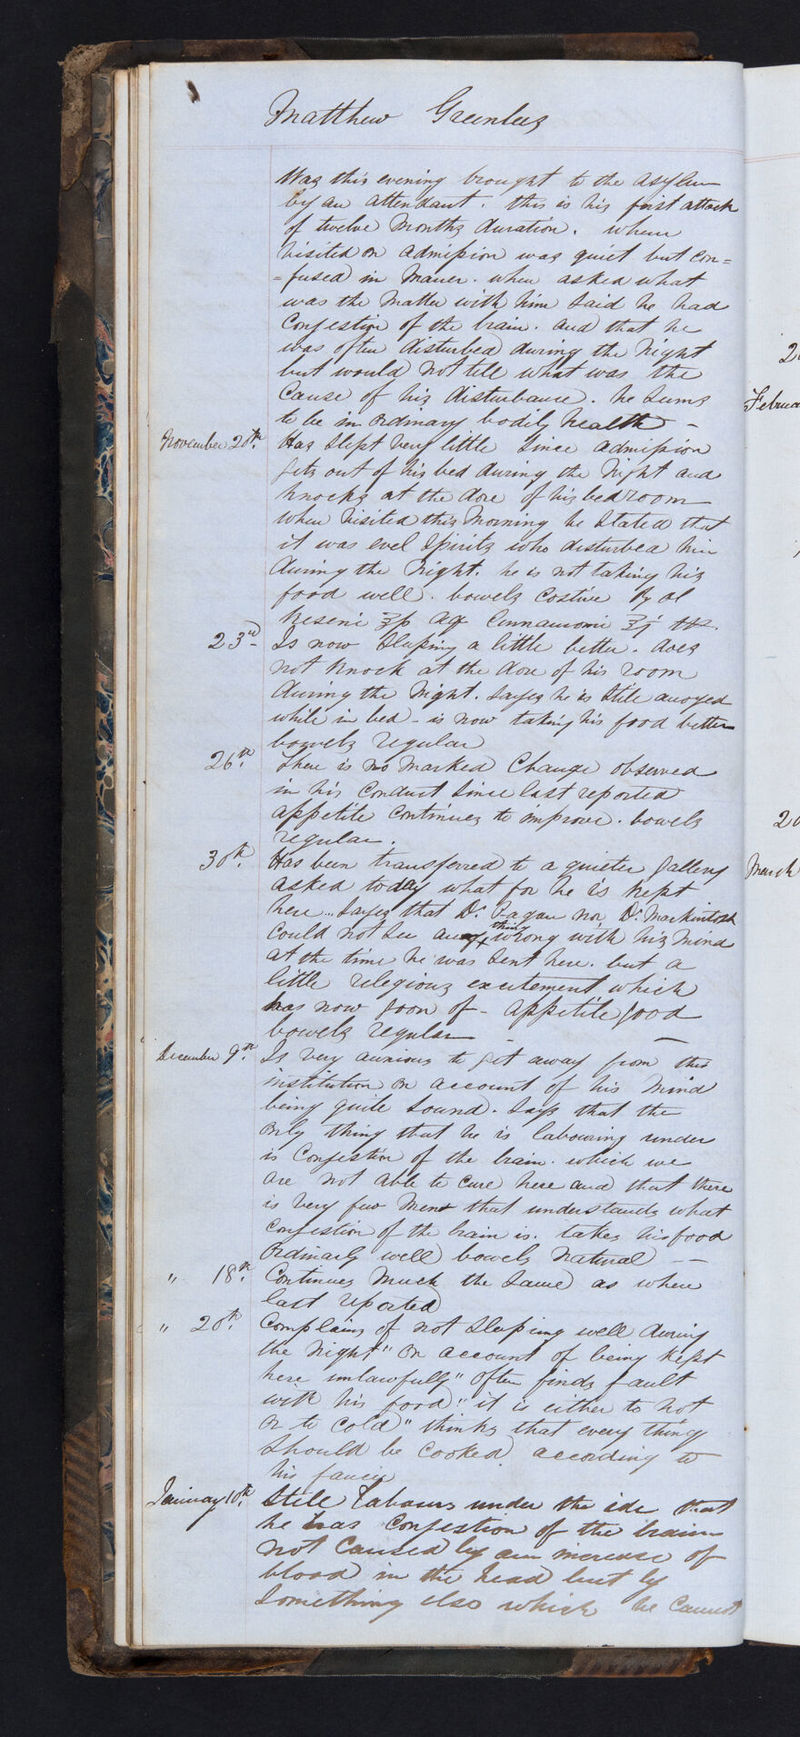 Matthew Greenlees
Was this evening brought to the asylum
by an attendant. this is his first attack
of twelve Months duration. when
visited on admission was quiet but con=
=fused in maner. when asked what
was the Matter with him Said he had
Congestion of the brain. and that he
was often disturbed during the Night
but would Not tell what was the
Cause of his disturbance. he Seems
to be in ordinary bodily health –
November 20th. Has Slept very little Since admission
Gets out of his bed during the Night and
Knocks at the dore of his bedroom
when visited this Morning he Stated that
it was evel Spirits who disturbed him
during the Night. he is not taking his
food well. bowels Costive Rx ol
Reseni ʒß aq Cinnamomi ℥j
23rd Is now Sleeping a little better. does
not Knock at the dore of his room
during the Night. Sayes he is Stile anoyed
while in bed – is now taking his food better
bowels regular
26th. There is no Marked Change observed
in his Conduct Since last reported
appetite Continues to improve. bowels
regular.
30th. Has been transferred to a quieter Gallery
asked today what for he is Kept
here.. Sayes that Dr. Fagan nor Dr. Mackintosh
Could not See any thing wrong with his Mind
at the time he was Sent here. but a
little relegious excitement which
has now goon of – appetite good
bowels regular – –
December 9th. Is very anxious to get away from this
institution on account of his Mind
being quite Sound. Says that the
only thing that he is labouring under
is Congestion of the brain. which we
are not able to Cure here and that there
is very few Men that understands what
Congestion of the brain is. takes his food
ordinarly well bowels Natural – –
" 18th. Continues Much the Same as when
last reported
" 20th. Complains of not Sleeping well during
the Night " on account of being Kept
here unlawfully" often finds fault
with his food " it is either to hot
or to Cold " thinks that every thing
Should be Cooked according to
his fancie
January 10th. Stile Labours under the ide that
he has Congestion of the brain
not Caused by an increase of
blood in the head but by
Something else which he Cannot
2
Februa
20
March